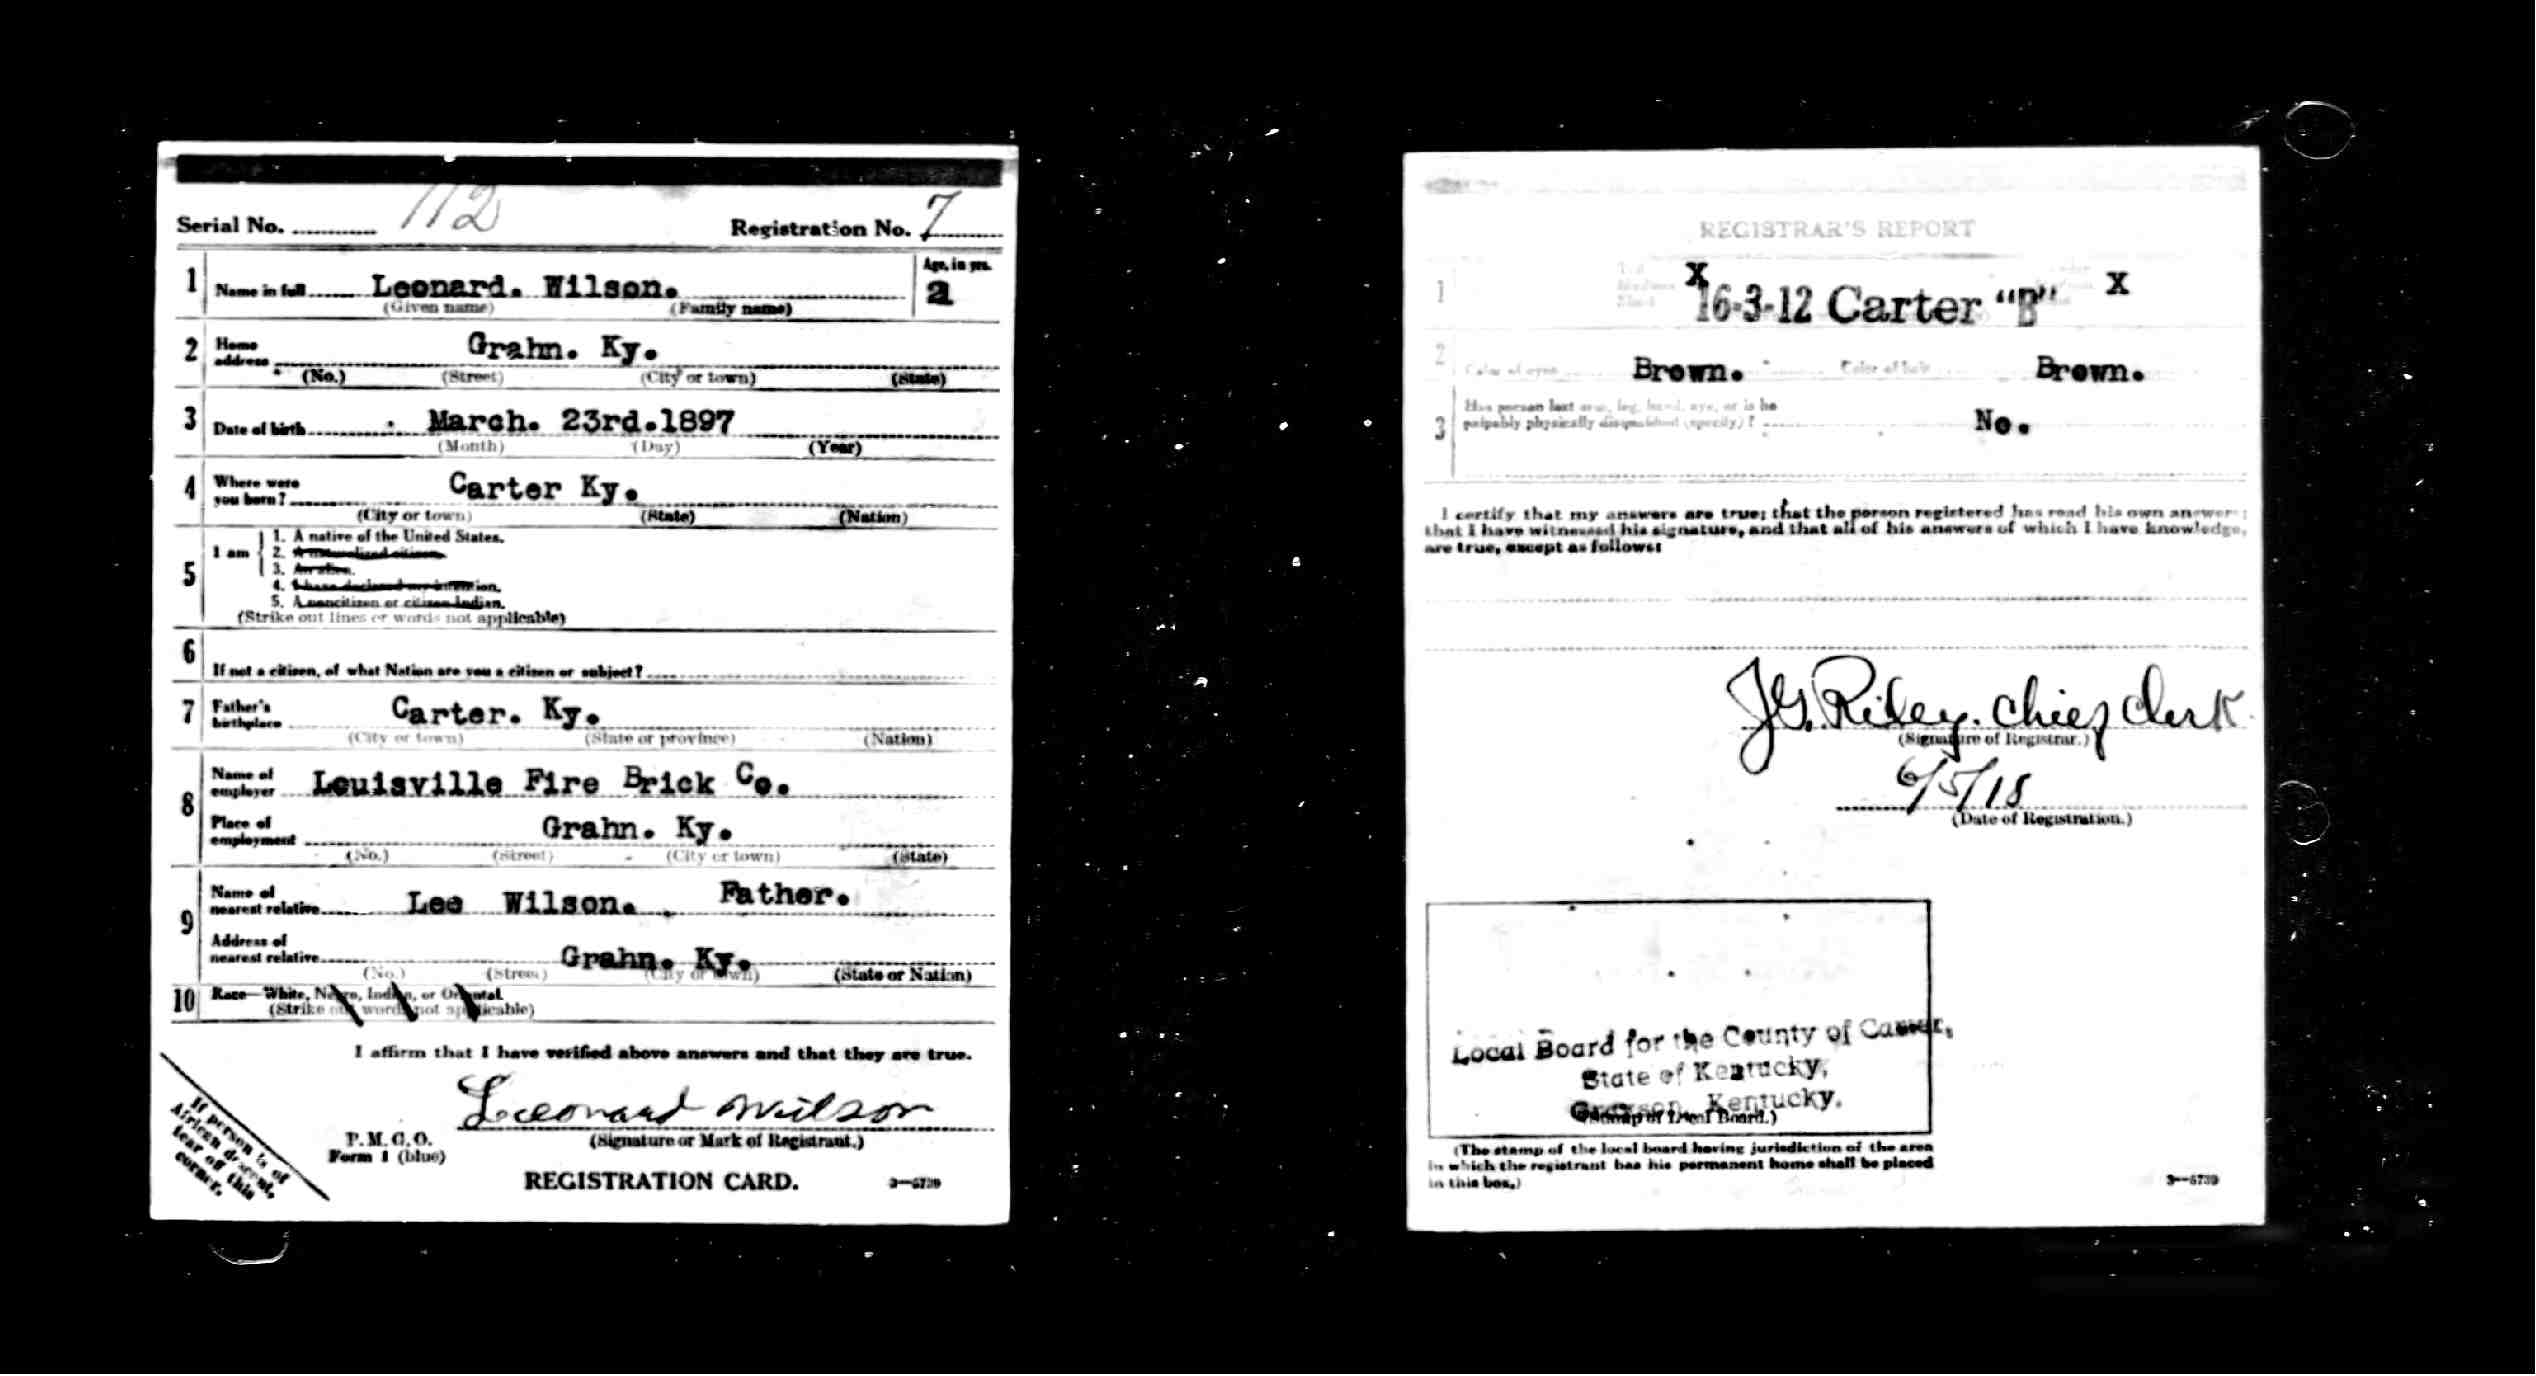 Serial No. 112 Registration No. 7
1 Name in full Leonard. Wilson. Age, in yrs.
(Given name) (Family name)
2 Home address Grahn. Ky.
(No.) (Street) (City or town) (State)
3 Date of birth March. 23rd.1897
(Month) (Day) (Year)
4 Where were you born? Carter Ky.
(City or town) (State) (Nation)
5 I am 1. A native of the United States.
2. A naturalized citizen.
3. An alien.
4. I have declared my intention.
5. A noncitizen or citizen Indian.
(Strike out lines or words not applicable)
6 If not a citizen, of what Nation are you a citizen or subject?
7 Father's birthplace Carter. Ky.
(City or town) (State or province) (Nation)
8 Name of employer Louisville Fire Brick Co.
Place of employment Grahn. Ky.
(No.) (Street) (City or town) (State)
9 Name of nearest relative Lee Wilson. Father.
Address of nearest relative Grahn. Ky.
(No.) (Street) (City or town) (State or Nation)
10 Race—White, Negro, Indian, or Oriental
(Strike out words not applicable)
I affirm that I have verified above answers and that they are true.
Leonard Wilson
(Signature or Mark of Registrant.)
P. M. G. O.
Form 1 (blue)
REGISTRATION CARD. 3—5739
If person is of
African descent,
tear off this
corner.
REGISTRAR'S REPORT
1 X 16-3-12 Carter "B" X
2 Color of eyes Brown. Color of hair Brown.
3 Has person lost arm, leg, hand, eye, or is he
palpably physically disqualified (specify)? No.
I certify that my answers are true; that the person registered has read his own answers;
that I have witnessed his signature, and that all of his answers of which I have knowledge,
are true, except as follows:
J.G. Riley. Chief Clerk
(Signature of Registrar.)
6/5/18
(Date of Registration.)
Local Board for the County of Carter,
State of Kentucky,
Grayson, Kentucky.
(Stamp of Local Board.)
(The stamp of the local board having jurisdiction of the area
in which the registrant has his permanent home shall be placed
in this box.)
3—5739